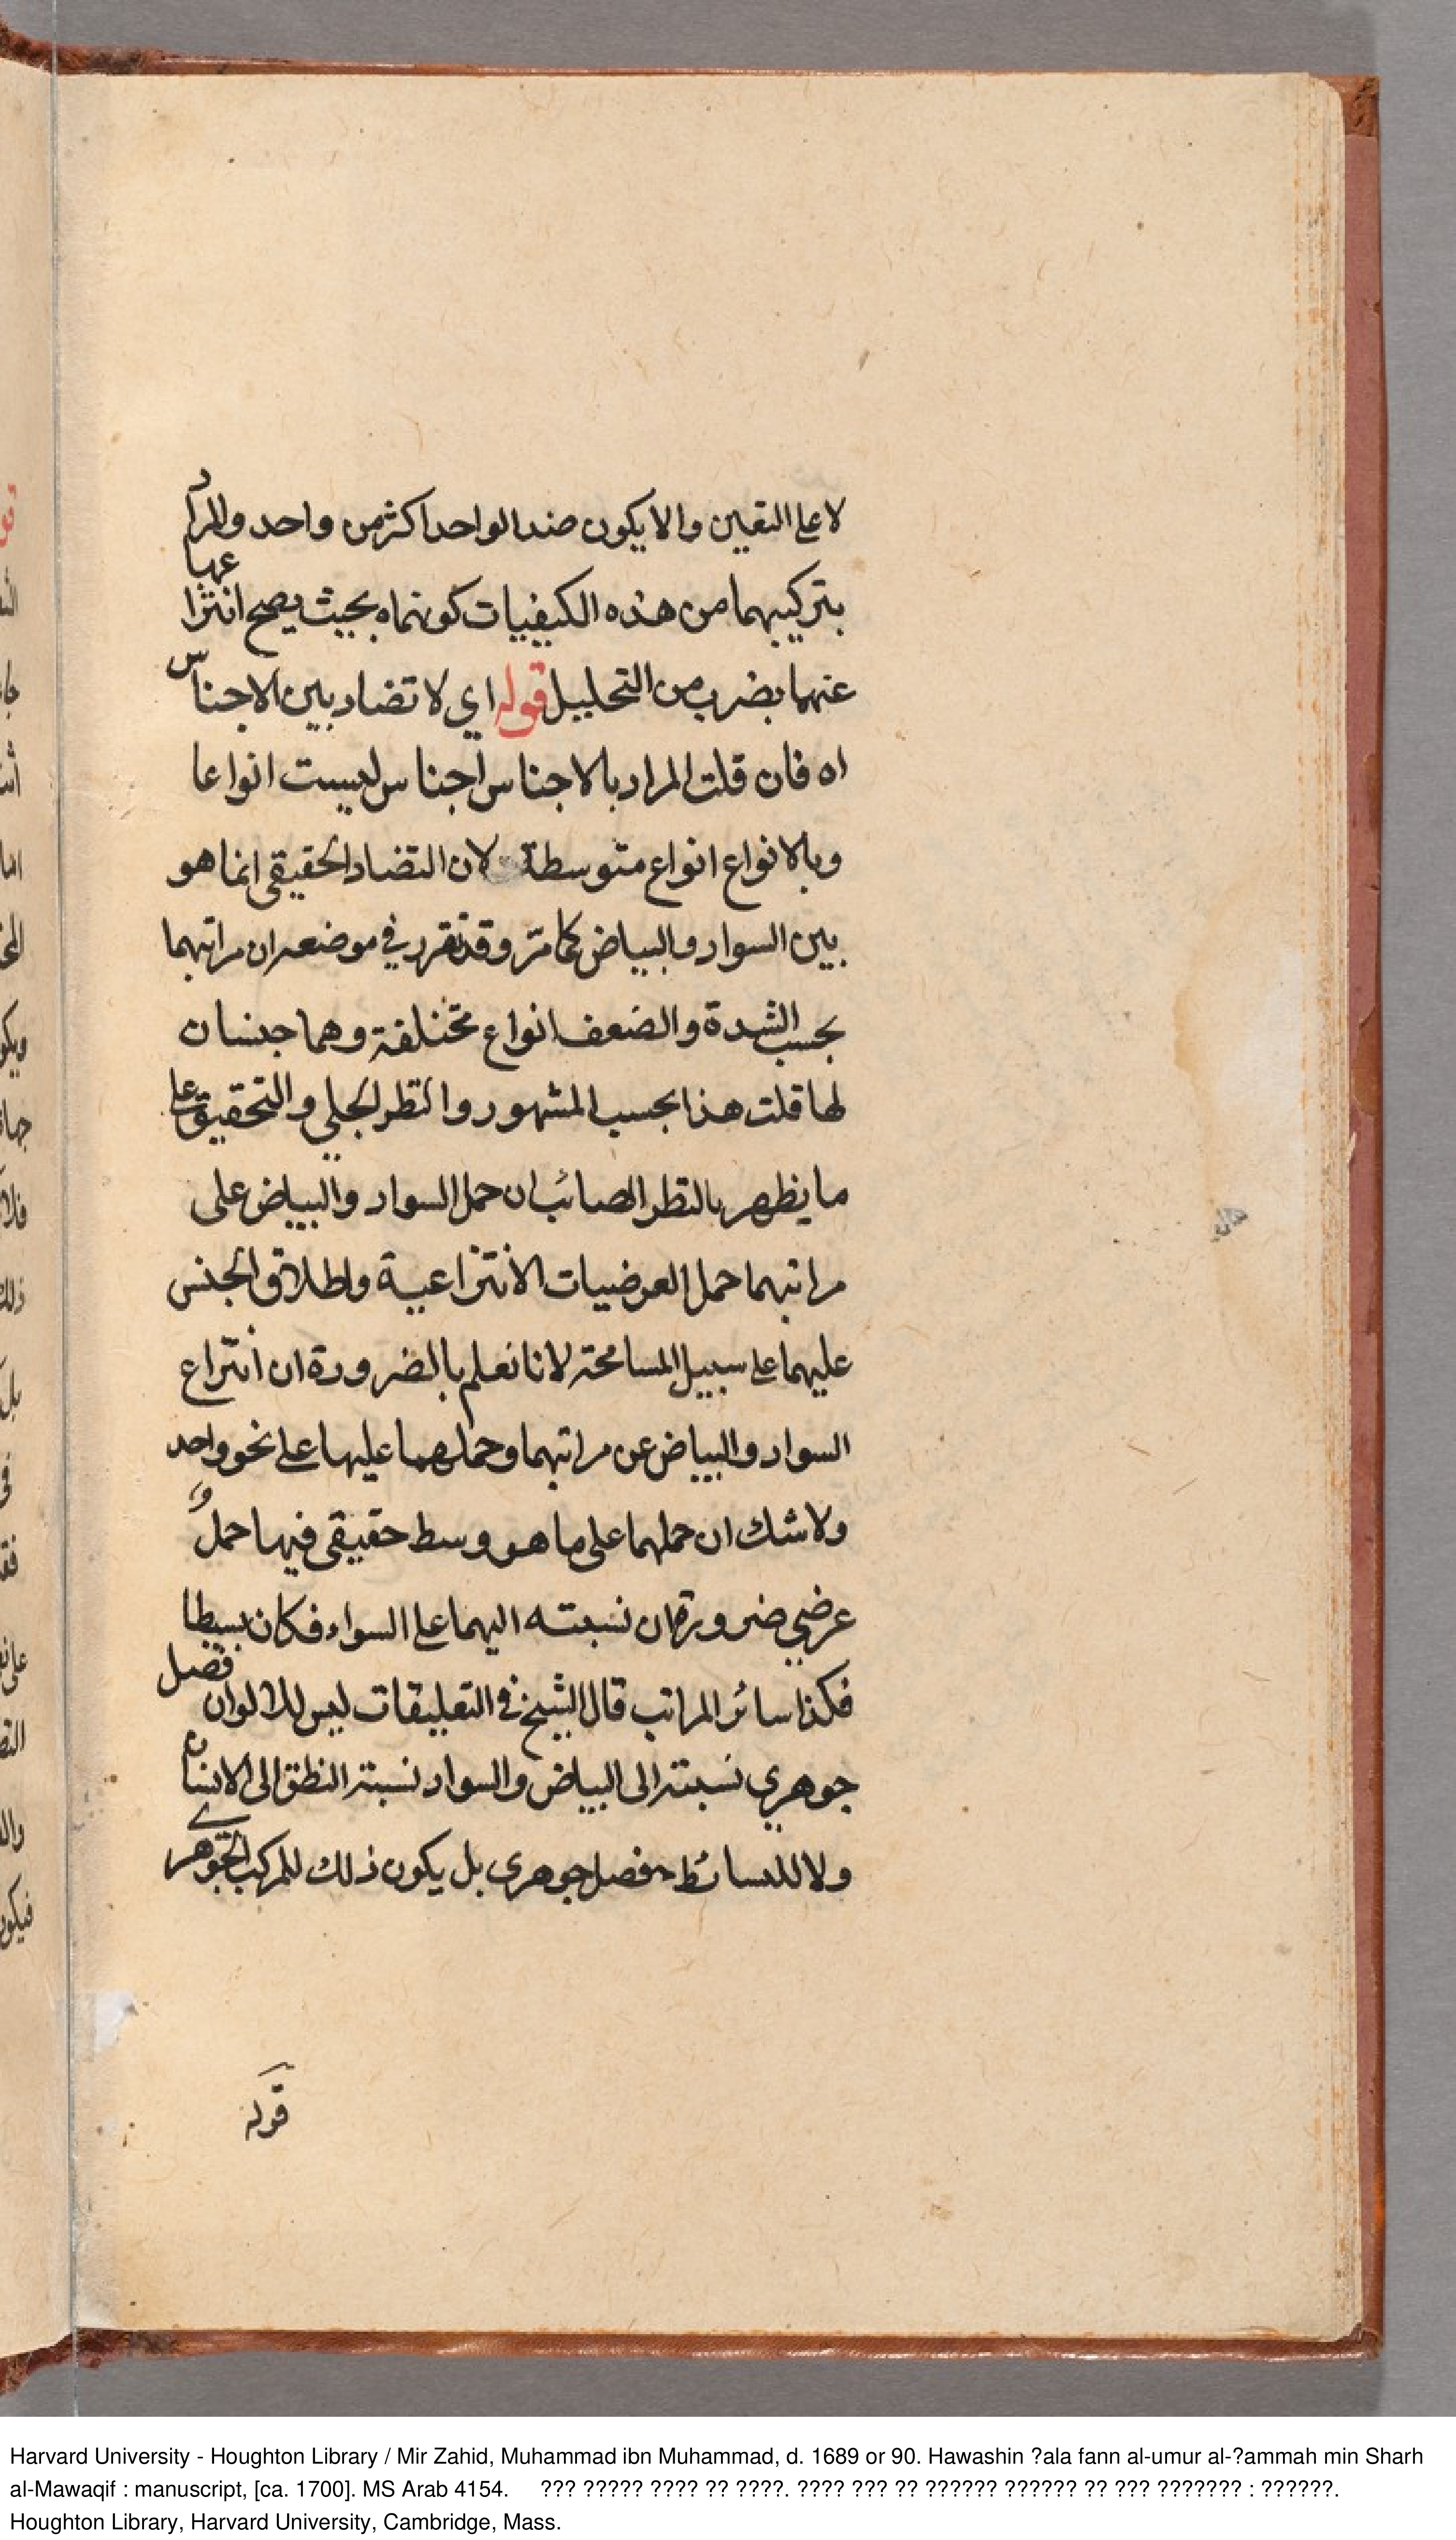 لا على التعين والا يكون ضد الواحد اكثر من واحد والمراد
بتركيبهما من هذه الكيفيات كونهما بحيث يصح انتزاعها
عنهما بضرب من التحليل قوله اي لا تضاد بين الاجناس
اه فان قلت المراد بالاجناس اجناس ليست انواعا
وبالانواع انواع متوسطة لان التضاد الحقيقي انما هو
بين السواد والبياض كما مرّ وقد تقرر في موضعه ان مراتبهما
بحسب الشدة والضعف انواع مختلفة وهما جنسان
لها قلت هذا بحسب المشهور والنظر الجلي والتحقيق على
ما يظهر بالنظر الصائب ان حمل السواد والبياض على
مراتبهما حمل العرضيات الانتزاعية واطلاق الجنس
عليهما على سبيل المسامحة لانا نعلم بالضرورة ان انتزاع
السواد والبياض عن مراتبهما وحملهما عليها على نحو واحد
ولا شك ان حملهما على ما هو وسط حقيقي فيها حمل
عرضي ضرورة ان نسبته اليهما على السواء فكان بسيطا
فكذا سائر المراتب قال الشيخ في التعليقات ليس للالوان فصل
جوهري نسبته الى البياض والسواد نسبة النطق الى الانسان
ولا للبسائط فصل جوهري بل يكون ذلك للمركب الجوهري
قوله
Harvard University - Houghton Library / Mir Zahid, Muhammad ibn Muhammad, d. 1689 or 90. Hawashin ?ala fann al-umur al-?ammah min Sharh
al-Mawaqif : manuscript, [ca. 1700]. MS Arab 4154. ??? ????? ???? ?? ????. ???? ??? ?? ?????? ?????? ?? ??? ??????? : ??????.
Houghton Library, Harvard University, Cambridge, Mass.